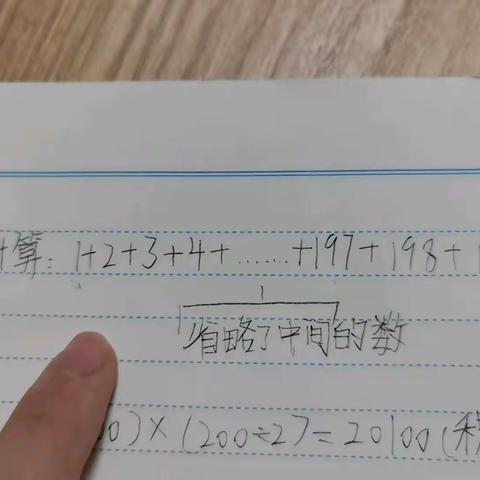 计算：1+2+3+4+……+197+198+1
省略了中间的数
00)×(200÷2)=20100(